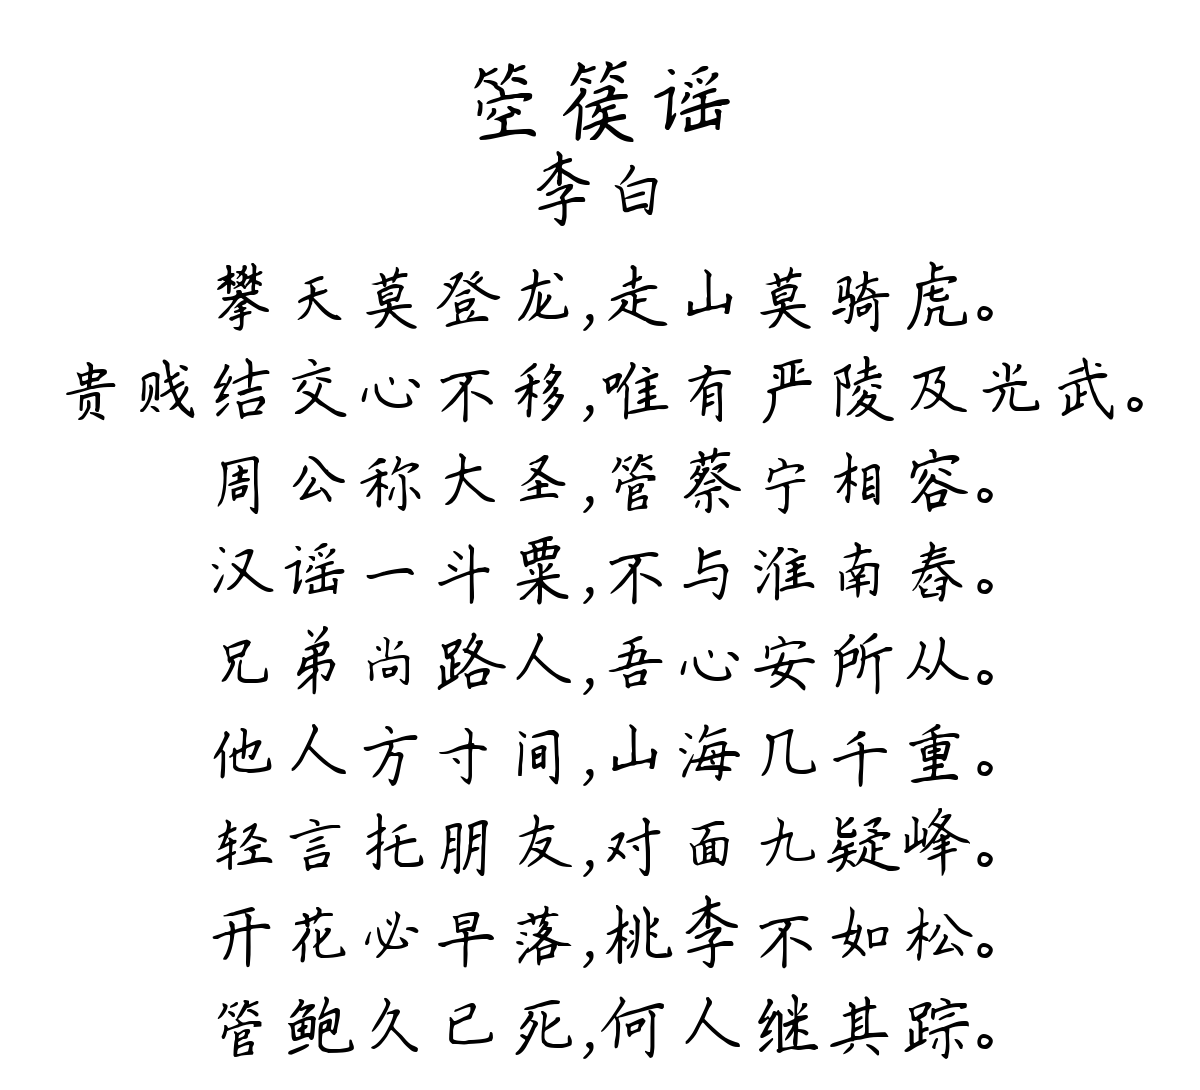 箜篌谣
李白
攀天莫登龙,走山莫骑虎。
贵贱结交心不移,唯有严陵及光武。
周公称大圣,管蔡宁相容。
汉谣一斗粟,不与淮南舂。
兄弟尚路人,吾心安所从。
他人方寸间,山海几千重。
轻言托朋友,对面九疑峰。
开花必早落,桃李不如松。
管鲍久已死,何人继其踪。